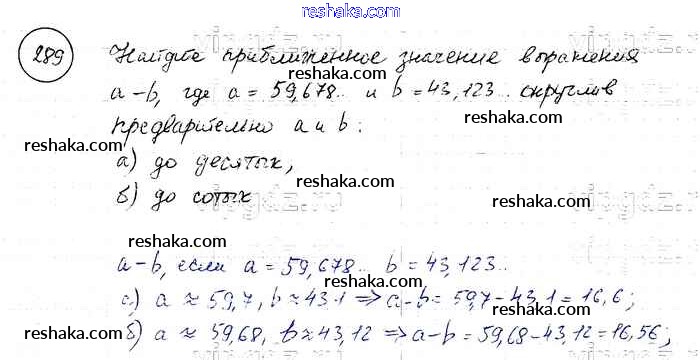 reshaka.com
289 Найдите приближенное значение выражения
reshaka.com
a-b, где a = 59,678.. и b = 43,123.. округлив
reshaka.com
предварительно a и b:
reshaka.com
reshaka.com
а) до десятых,
reshaka.com
б) до сотых
reshaka.com
reshaka.com
a-b, если a = 59,678.. b = 43,123..
reshaka.com
а) a ≈ 59,7, b ≈ 43,1 => a-b = 59,7-43,1 = 16,6;
reshaka.com
б) a ≈ 59,68, b ≈ 43,12 => a-b = 59,68-43,12 = 16,56;
reshaka.com